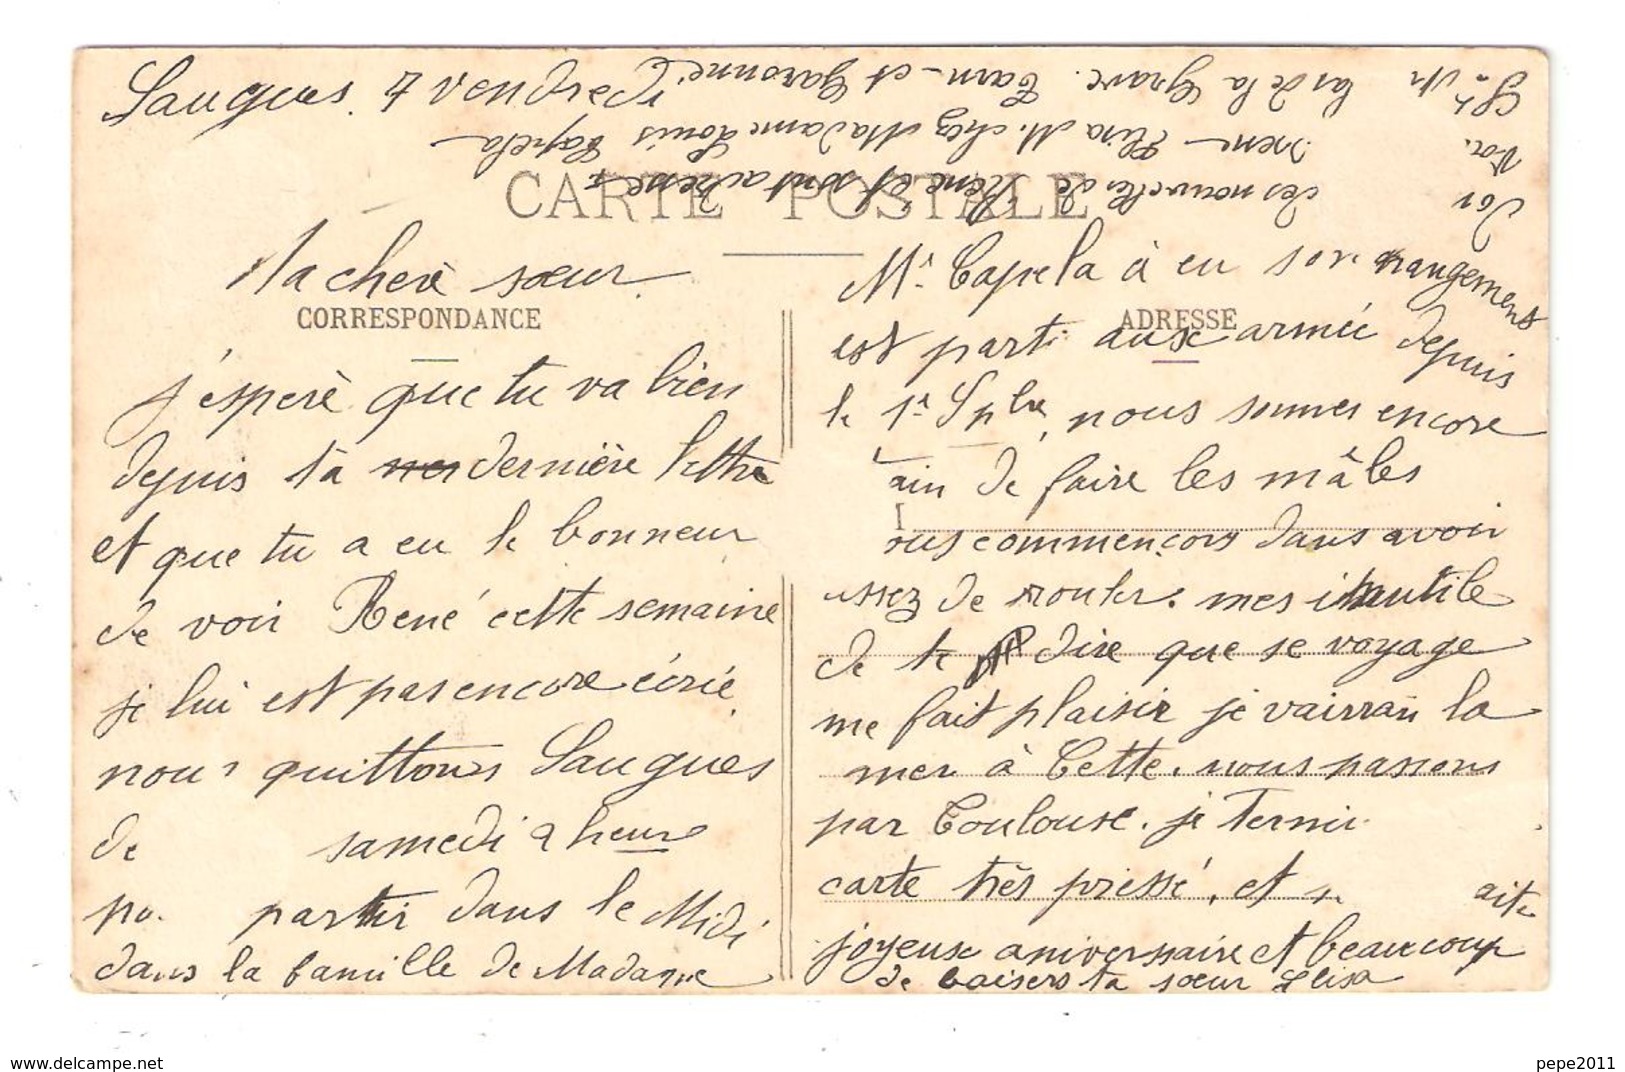 Saugues. 4 vendredi
CARTE POSTALE
Ma cherè sœur.
CORRESPONDANCE
j'esperè que tu va bien
depuis ta dernière lettre
et que tu a eu le bonneur
de voir René cette semaine
je lui est pas encore écrié
nous quittons Saugues
de samedi 9 heure
partir dans le Midi
dans la famille de Madame
Mr. Capela à eu son arrangement
est parti aux armée depuis
ADRESSE
le 1r Spbre, nous sommes encore
ain de faire les mâles
ous commençons dans avoir
ussez de rouler. mes inutile
de te dire que se voyage
me fait plaisir je vairrai la
mer à Cette. nous passons
par Toulouse. je termi
carte très pressé, et aite
joyeuse aniversaire et beaucoup
de baisers ta sœur Elisa
des nouvelles de René et sont adresse
Elisa M. chez Madame Louis Capela
las de la Grave. Tarn-et Garonne
delcampe.net
pepe2011